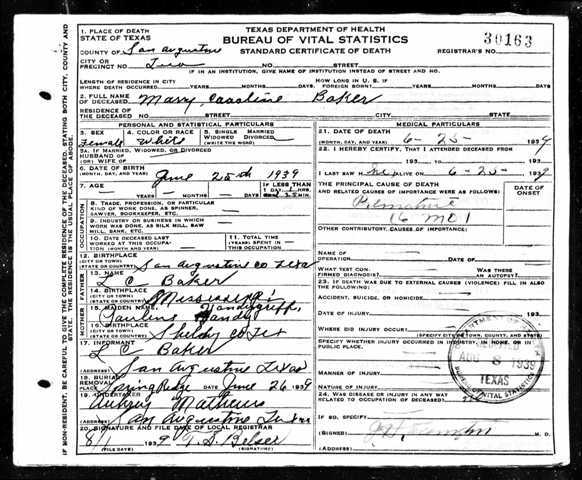 TEXAS DEPARTMENT OF HEALTH
BUREAU OF VITAL STATISTICS
STANDARD CERTIFICATE OF DEATH
30163
REGISTRAR'S NO.
1. PLACE OF DEATH
STATE OF TEXAS
COUNTY OF San Augustine
CITY OR PRECINCT NO. Two NO. STREET
IF IN AN INSTITUTION, GIVE NAME OF INSTITUTION INSTEAD OF STREET AND NO.
LENGTH OF RESIDENCE IN CITY WHERE DEATH OCCURRED YEARS MONTHS DAYS HOW LONG IN U. S. IF FOREIGN BORN? YEARS MONTHS DAYS
2. FULL NAME OF DECEASED Mary Caroline Baker
RESIDENCE OF THE DECEASED NO. STREET CITY COUNTY STATE
PERSONAL AND STATISTICAL PARTICULARS
3. SEX Female
4. COLOR OR RACE White
5. SINGLE MARRIED WIDOWED DIVORCED (WRITE THE WORD)
5A. IF MARRIED, WIDOWED, OR DIVORCED
HUSBAND OF
(OR) WIFE OF
6. DATE OF BIRTH (MONTH, DAY, AND YEAR) June 25th 1939
7. AGE YEARS MONTHS DAYS IF LESS THAN 1 DAY
8. TRADE, PROFESSION, OR PARTICULAR KIND OF WORK DONE, AS SPINNER, SAWYER, BOOKKEEPER, ETC.
9. INDUSTRY OR BUSINESS IN WHICH WORK WAS DONE, AS SILK MILL, SAW MILL, BANK, ETC.
10. DATE DECEASED LAST WORKED AT THIS OCCUPATION (MONTH AND YEAR)
11. TOTAL TIME (YEARS) SPENT IN THIS OCCUPATION
12. BIRTHPLACE (CITY OR TOWN) (STATE OR COUNTRY) San Augustine Co Texas
13. NAME L C Baker
14. BIRTHPLACE (CITY OR TOWN) (STATE OR COUNTRY) Mississippi
15. MAIDEN NAME Pauline
16. BIRTHPLACE (CITY OR TOWN) (STATE OR COUNTRY) Shelby Co Tex
17. INFORMANT L C Baker
San Augustine Texas
18. BURIAL REMOVAL Spring Ridge June 26 1939
19. UNDERTAKER Mathews
San Augustine Texas
20. SIGNATURE AND FILE DATE OF LOCAL REGISTRAR
8/1 1939
(FILE DATE) (SIGNATURE)
MEDICAL PARTICULARS
21. DATE OF DEATH (MONTH, DAY, AND YEAR) 6-25- 1939
22. I HEREBY CERTIFY, THAT I ATTENDED DECEASED FROM
193 TO 193
I LAST SAW H ALIVE ON 6-25- 1939
THE PRINCIPAL CAUSE OF DEATH AND RELATED CAUSES OF IMPORTANCE WERE AS FOLLOWS:
DATE OF ONSET
(6 mo)
OTHER CONTRIBUTORY CAUSES OF IMPORTANCE:
NAME OF OPERATION DATE OF
WHAT TEST CONFIRMED DIAGNOSIS? WAS THERE AN AUTOPSY?
23. IF DEATH WAS DUE TO EXTERNAL CAUSES (VIOLENCE) FILL IN ALSO THE FOLLOWING:
ACCIDENT, SUICIDE, OR HOMICIDE?
DATE OF INJURY
WHERE DID INJURY OCCUR?
(SPECIFY CITY OR TOWN, COUNTY, AND STATE)
SPECIFY WHETHER INJURY OCCURRED IN INDUSTRY, IN HOME, OR IN PUBLIC PLACE.
MANNER OF INJURY
NATURE OF INJURY
24. WAS DISEASE OR INJURY IN ANY WAY RELATED TO OCCUPATION OF DECEASED?
IF SO, SPECIFY
(SIGNED) M. D.
RECEIVED
AUG 8 1939
TEXAS
BUREAU OF VITAL STATISTICS
IF NON-RESIDENT, BE CAREFUL TO GIVE THE COMPLETE RESIDENCE OF THE DECEASED, STATING BOTH CITY, COUNTY AND STATE